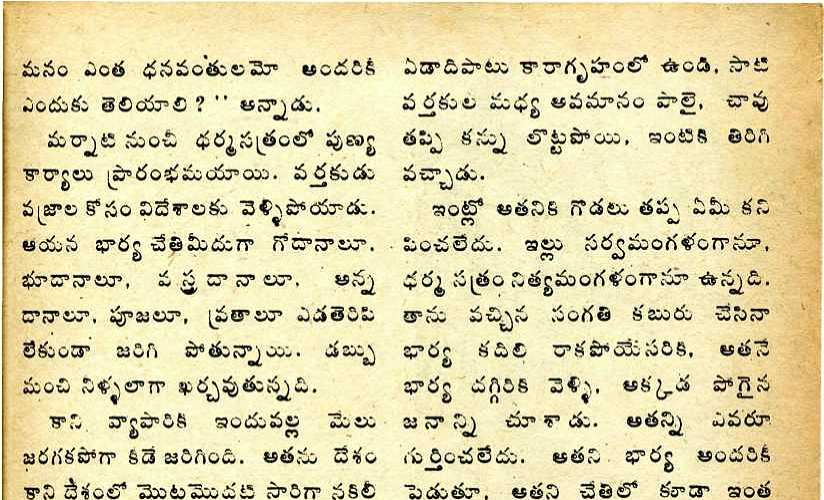 మనం ఎంత ధనవంతులమో అందరికీ
ఎందుకు తెలియాలి ? '' అన్నాడు.
మర్నాటి నుంచీ ధర్మసత్రంలో పుణ్య
కార్యాలు ప్రారంభమయాయి. వర్తకుడు
వజ్రాల కోసం విదేశాలకు వెళ్ళిపోయాడు.
ఆయన భార్య చేతిమీదుగా గోదానాలూ,
భూదానాలూ, వస్త్రదానాలూ, అన్న
దానాలూ, పూజలూ, వ్రతాలూ ఎడతెరిపి
లేకుండా జరిగి పోతున్నాయి. డబ్బు
మంచి నీళ్ళలాగా ఖర్చవుతున్నది.
కాని వ్యాపారికి ఇందువల్ల మేలు
జరగకపోగా కీడే జరిగింది. అతను దేశం
కాని దేశంలో మొట్టమొదటి సారిగా నకిలీ
ఏడాదిపాటు కారాగృహంలో ఉండి, సాటి
వర్తకుల మధ్య అవమానం పాలై, చావు
తప్పి కన్ను లొట్టపోయి, ఇంటికి తిరిగి
వచ్చాడు.
ఇంట్లో అతనికి గోడలు తప్ప ఏమీ కని
పించలేదు. ఇల్లు సర్వమంగళంగానూ,
ధర్మ సత్రం నిత్యమంగళంగానూ ఉన్నది.
తాను వచ్చిన సంగతి కబురు చేసినా
భార్య కదిలి రాకపోయేసరికి, అతనే
భార్య దగ్గిరికి వెళ్ళి, అక్కడ పోగైన
జనాన్ని చూశాడు. అతన్ని ఎవరూ
గుర్తించలేదు. అతని భార్య అందరికీ
పెడుతూ, అతని చేతిలో కూడా ఇంత